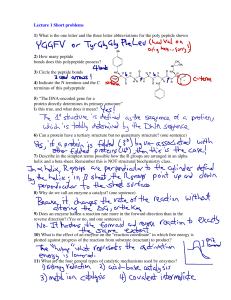 Lecture 1 Short problems
1) What is the one letter and the three letter abbreviations for the poly peptide shown
YGGFV or TyrGlyGlyPheLeu (should val on
2) How many peptide
bonds does this polypeptide possess?
4 bonds
3) Circle the peptide bonds
4) Indicate the N terminus and the C
terminus of this polypeptide
C-term
5) "The DNA encoded gene for a
protein directly determines its primary structure"
Is this true, and what does it mean?
Yes!
The 1° structure is defined as the sequence of a protein,
which is totally determined by the DNA sequence.
6) Can a protein have a tertiary structure but no quaternary structure? (one sentence)
Yes, if a protein is folded (3°) but un-associated with
other folded proteins (4°), then this is the case!
7) Describe in the simplest terms possible how the R groups are arranged in an alpha
helix and a beta sheet. Remember this is NOT structural biochemistry class.
In α helix, R groups are perpendicular to the cylinder defined
by the helix; in β sheet the R groups point up and down
perpendicular to the sheet surface
8) Why do we call an enzyme a catalyst? (one sentence)
Because it changes the rate of the reaction without
altering the
9) Does an enzyme hasten a reaction rate more in the forward direction than in the
reverse direction? (Yes or no, and one sentence).
No. It hastens the forward and reverse reaction to exactly
the same extent
10) What is the effect of an enzyme on the "reaction coordinate" in which free energy is
plotted against progress of the reaction from substrate (reactant) to product?
The "hump" which represents the activation
energy is lowered.
11) What are the four general types of catalytic mechanisms used by enzymes?
1) entropy reduction 2) acid-base catalysis
3) metal ion catalysis 4) covalent intermediate